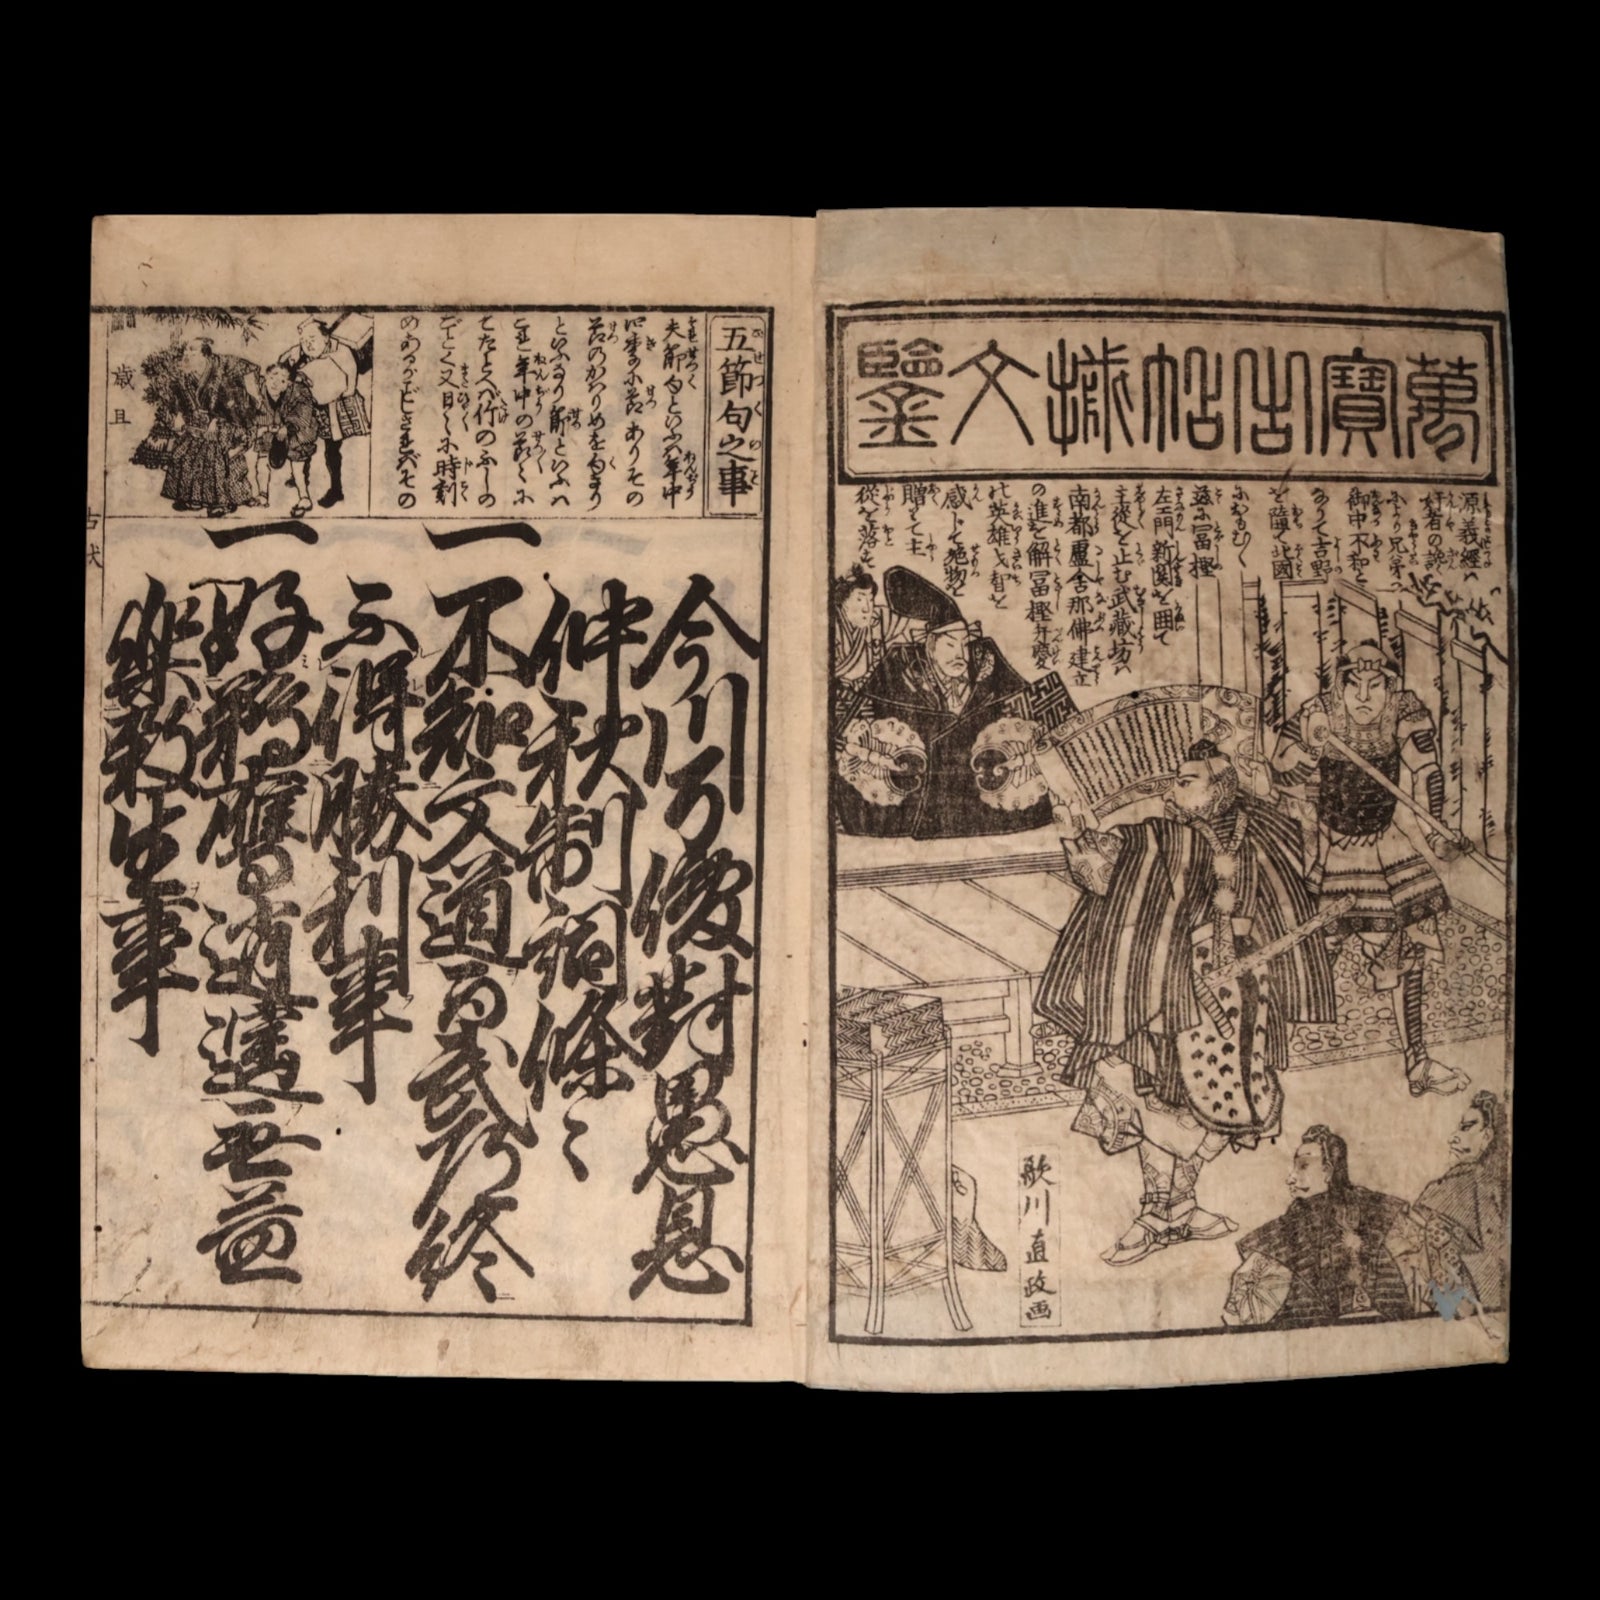 萬寶古状揃文鑒
源義經ハ
奸者の讒
により兄弟の
御中不和と
なりて吉野
を隨て北國
におもむく
茲に冨樫
左エ門新関を囲て
主従を止む武蔵坊ハ
南都盧舎那佛建立
の進を解冨樫弁慶
の英雄才智を
感じて施物を
贈りて主
従を落す
歌川直政画
五節句之事
夫節句といふハ年中
四季の小節ありその
節のかハりめを句きり
といふなり節といふハ
これ年中の節々に
たとへバ竹のふしの
ごとく又日々に時刻
のあるがごとしされバその
歳旦
古状
今川了俊對愚息
仲秋制詞條々
一 不知文道而武道終
不得勝利事
一 好鵜鷹逍遥無益
樂殺生事